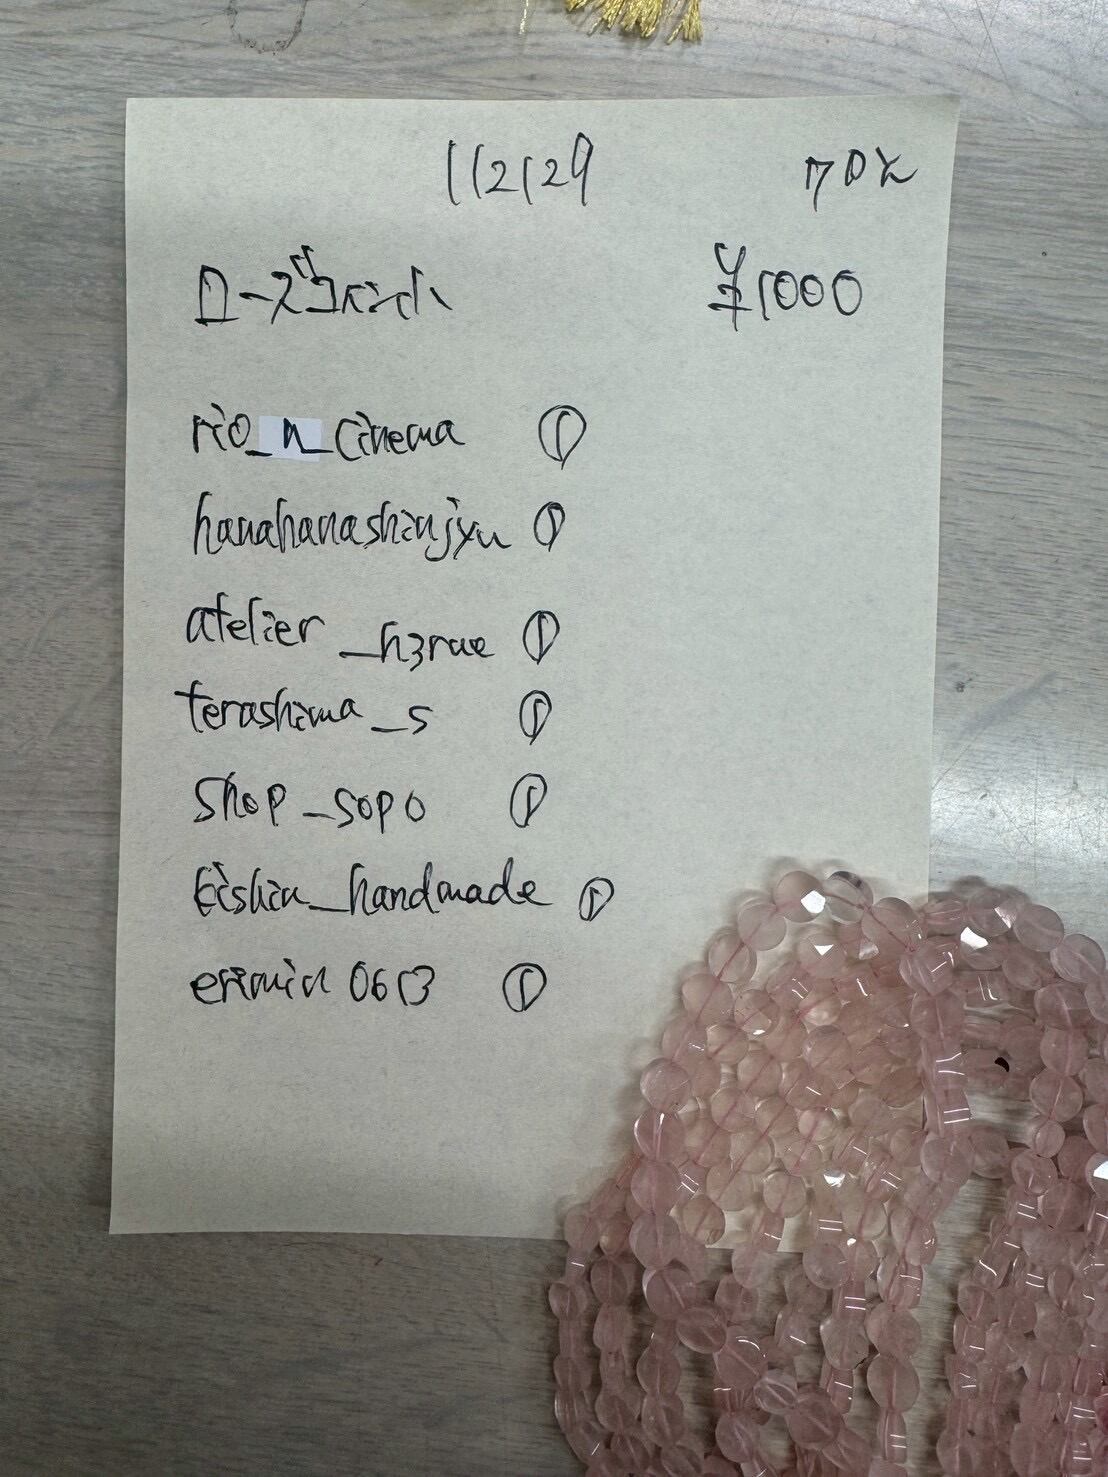 112129 70%
ローズコイントル
¥1000
rio_n_cinema ①
hanahanashinjyu ①
atelier_h3rae ①
terashima_s ①
shop_sopo ①
kishin_handmade ①
erimin0613 ①